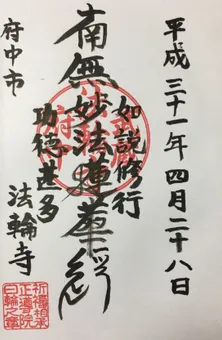 平成三十一年四月二十八日
如説修行
南無妙法蓮華経
功徳甚多
府中市
法輪寺
武蔵
府中